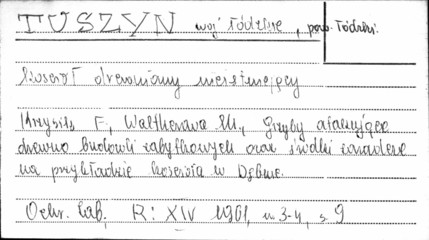 TUSZYN woj. łódzkie, pow. łódzki.
Kościół drewniany nieistniejący
Krzysik F., Walthenowa M., Grzyby atakujące
drewno budowli zabytkowych oraz środki zaradcze
na przykładzie kościoła w Dębnie.
Ochr. Zab., R: XIV 1961, n. 3-4, s. 9